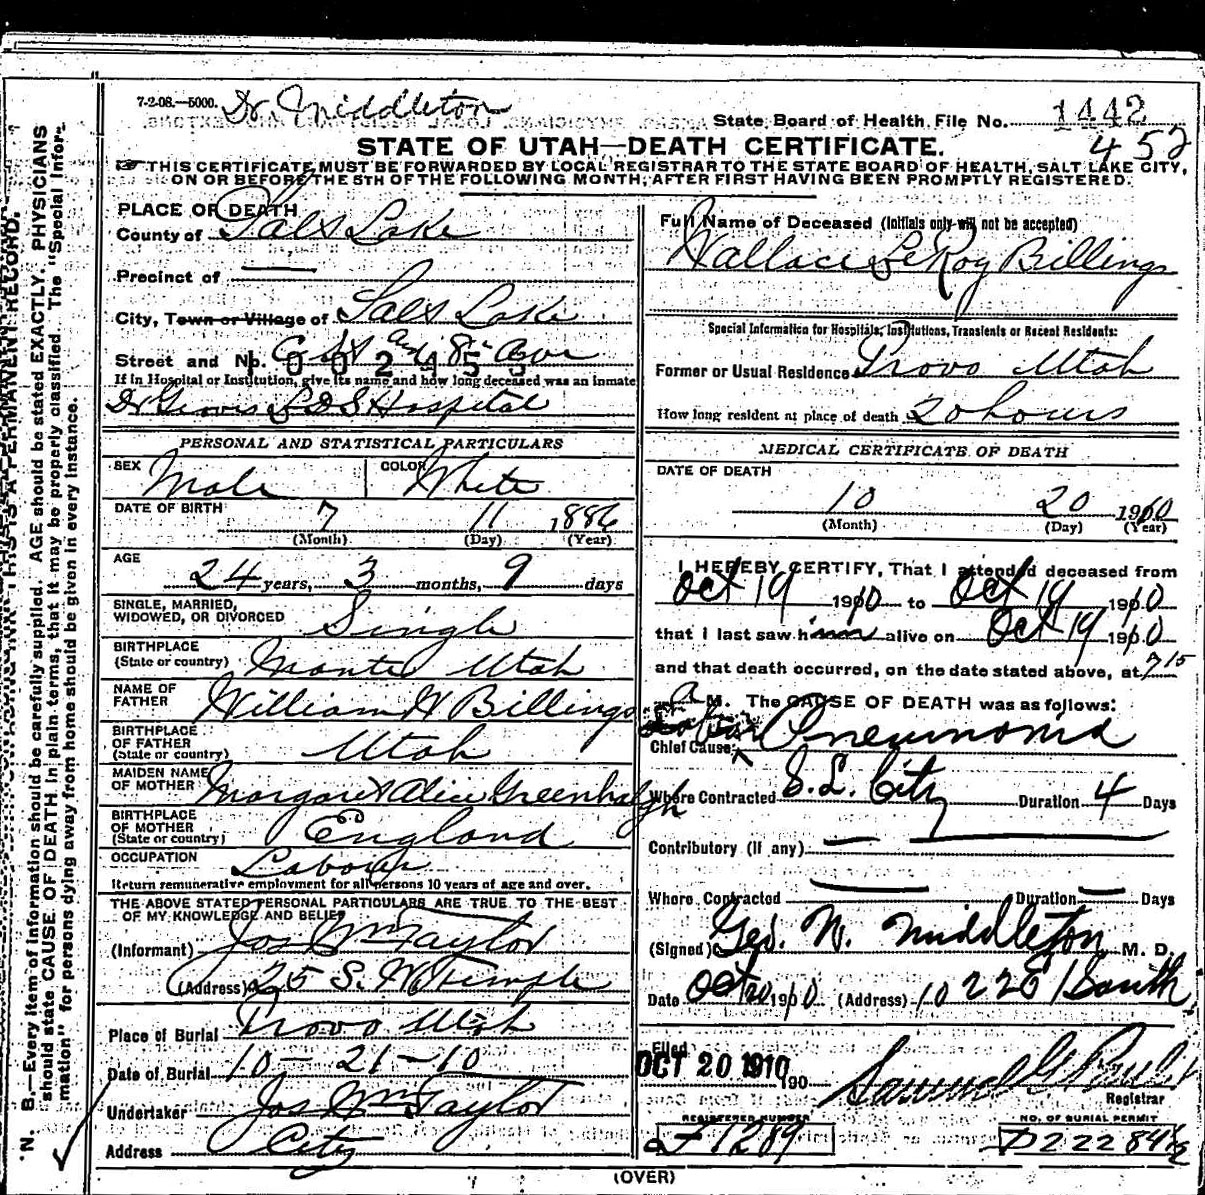 7-2-08.—5000. Dr. Middleton
State Board of Health File No. 1442
452
STATE OF UTAH—DEATH CERTIFICATE.
THIS CERTIFICATE MUST BE FORWARDED BY LOCAL REGISTRAR TO THE STATE BOARD OF HEALTH, SALT LAKE CITY,
ON OR BEFORE THE 5TH OF THE FOLLOWING MONTH, AFTER FIRST HAVING BEEN PROMPTLY REGISTERED.
PLACE OF DEATH
County of Salt Lake
Precinct of
City, Town or Village of Salt Lake
Street and No. C St and 8th Ave
1002455
If in Hospital or Institution, give its name and how long deceased was an inmate
L D S Hospital
PERSONAL AND STATISTICAL PARTICULARS
SEX Male COLOR White
DATE OF BIRTH 7 11 1886
(Month) (Day) (Year)
AGE 24 years, 3 months, 9 days
SINGLE, MARRIED,
WIDOWED, OR DIVORCED Single
BIRTHPLACE
(State or country) Manti Utah
NAME OF
FATHER William H Billings
BIRTHPLACE
OF FATHER
(State or country) Utah
MAIDEN NAME
OF MOTHER Margaret Alice Greenhalgh
BIRTHPLACE
OF MOTHER
(State or country) England
OCCUPATION Laborer
Return remunerative employment for all persons 10 years of age and over.
THE ABOVE STATED PERSONAL PARTICULARS ARE TRUE TO THE BEST
OF MY KNOWLEDGE AND BELIEF
(Informant) Jos Wm Taylor
(Address) 25 S. W Temple
Place of Burial Provo Utah
Date of Burial 10-21-10
Undertaker Jos Wm Taylor
Address City
Full Name of Deceased (Initials only will not be accepted)
Wallace LeRoy Billings
Special Information for Hospitals, Institutions, Transients or Recent Residents:
Former or Usual Residence Provo Utah
How long resident at place of death 20 hours
MEDICAL CERTIFICATE OF DEATH
DATE OF DEATH
10 20 1910
(Month) (Day) (Year)
I HEREBY CERTIFY, That I attended deceased from
Oct 19 1910 to Oct 19 1910
that I last saw him alive on Oct 19 1910
and that death occurred, on the date stated above, at 7 15
A M. The CAUSE OF DEATH was as follows:
Chief Cause: Lobar Pneumonia
Where Contracted S. L. City Duration 4 Days
Contributory (if any)
Where Contracted Duration Days
(Signed) Geo. W. Middleton M. D.
Date Oct 20 1910 (Address)
Filed OCT 20 1910 190
Registrar
REGISTERED NUMBER NO. OF BURIAL PERMIT
1289
(OVER)
N. B.—Every item of information should be carefully supplied. AGE should be stated EXACTLY. PHYSICIANS
should state CAUSE OF DEATH in plain terms, that it may be properly classified. The "Special Infor-
mation" for persons dying away from home should be given in every instance.